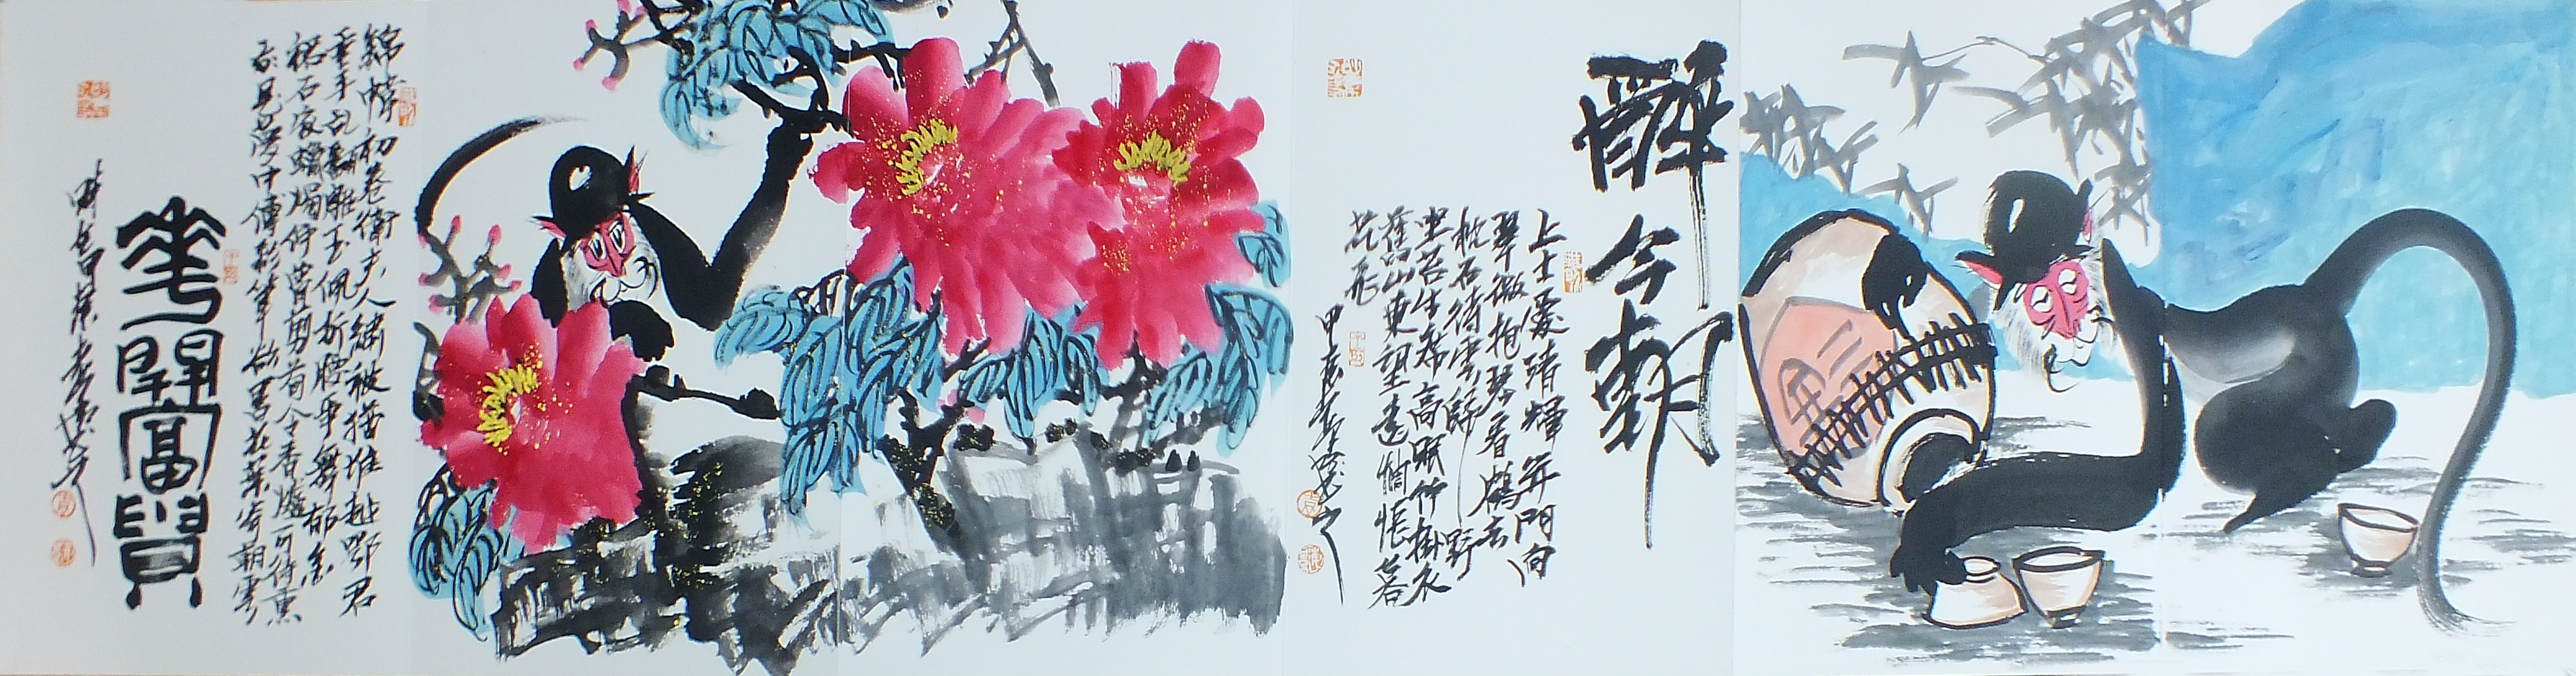 醉今朝
上士愛清輝开門向
翠微抱琴看鶴去
枕石待雲歸野
坐苔生席高眠竹掛衣
舊山東望遠惆悵暮
花飛
甲辰
錦幃初卷衛夫人繡被猶堆越鄂君
垂手乱翻雕玉佩折腰爭舞郁金
裙石家蠟燭何曾剪荀令香爐可待熏
我是夢中傳彩筆欲書花葉寄朝雲
華開富貴
時在甲辰